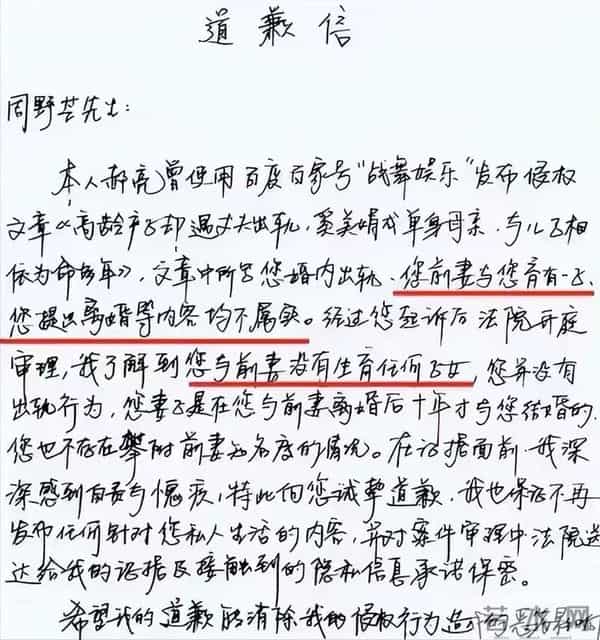 道歉信
周野芒先生：
本人郝亮曾使用百度百家号“战舞娱乐”发布侵权
文章《高龄产子却遇丈夫出轨，奚美娟成单身母亲，与儿子相
依为命多年》，文章中所写您婚内出轨、您前妻与您育有一子、
您提出离婚等内容均不属实。经过您起诉后法院开庭
审理，我了解到您与前妻没有生育任何子女，您并没有
出轨行为，您妻子是在您与前妻离婚后十年才与您结婚的，
您也不存在攀附前妻知名度的情况。在证据面前，我深
深感到自责与愧疚，特此向您诚挚道歉，我也保证不再
发布任何针对您私人生活的内容，并对案件审理中法院送
达给我的证据及接触到的隐私信息承诺保密。
希望我的道歉能消除我的侵权行为造